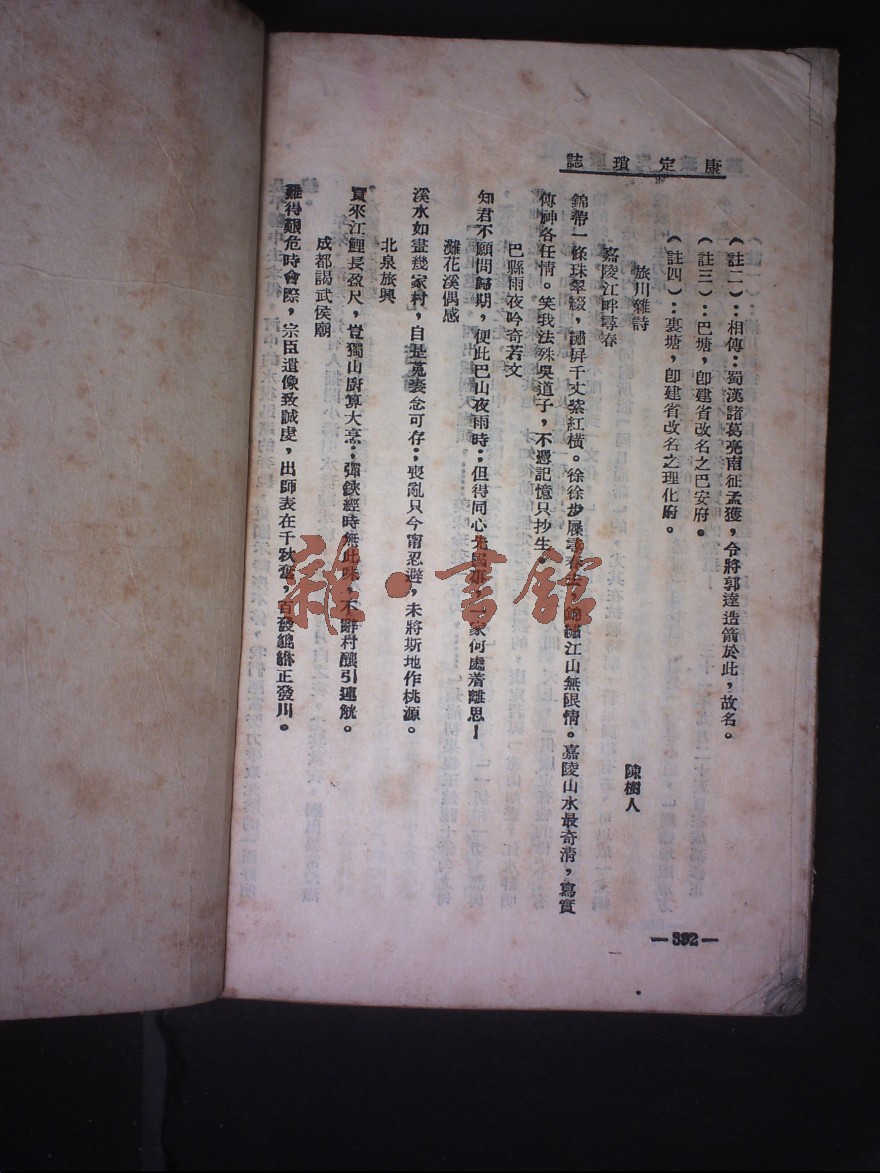 康定瑣誌
（註二）：相傳：蜀漢諸葛亮南征孟獲，令將郭達造箭於此，故名。
（註三）：巴塘，卽建省改名之巴安府。
（註四）：裏塘，卽建省改名之理化府。
旅川雜詩
陳樹人
嘉陵江畔尋春
錦帶一條珠翠綴，繡屛千丈紫紅橫。徐徐步屧尋春去，錦繡江山無限情。嘉陵山水最奇清，寫實
傳神各任情。笑我法殊吳道子，不憑記憶只抄生。
巴縣雨夜吟寄若文
知君不願問歸期，便此巴山夜雨時：但得同心先國事，一家何處著離思！
灘花溪偶感
溪水如畫幾家村，自是菟裘念可存：喪亂只今甯忍避，未將斯地作桃源。
北泉旅興
買來江鯉長盈尺，豈獨山廚算大烹：彈鋏經時無此味，不辭村釀引連觥。
成都謁武侯廟
難得艱危時會際，宗臣遺像致誠虔，出師表在千秋奮，百發總綠正發川。
—392—
雜·書館